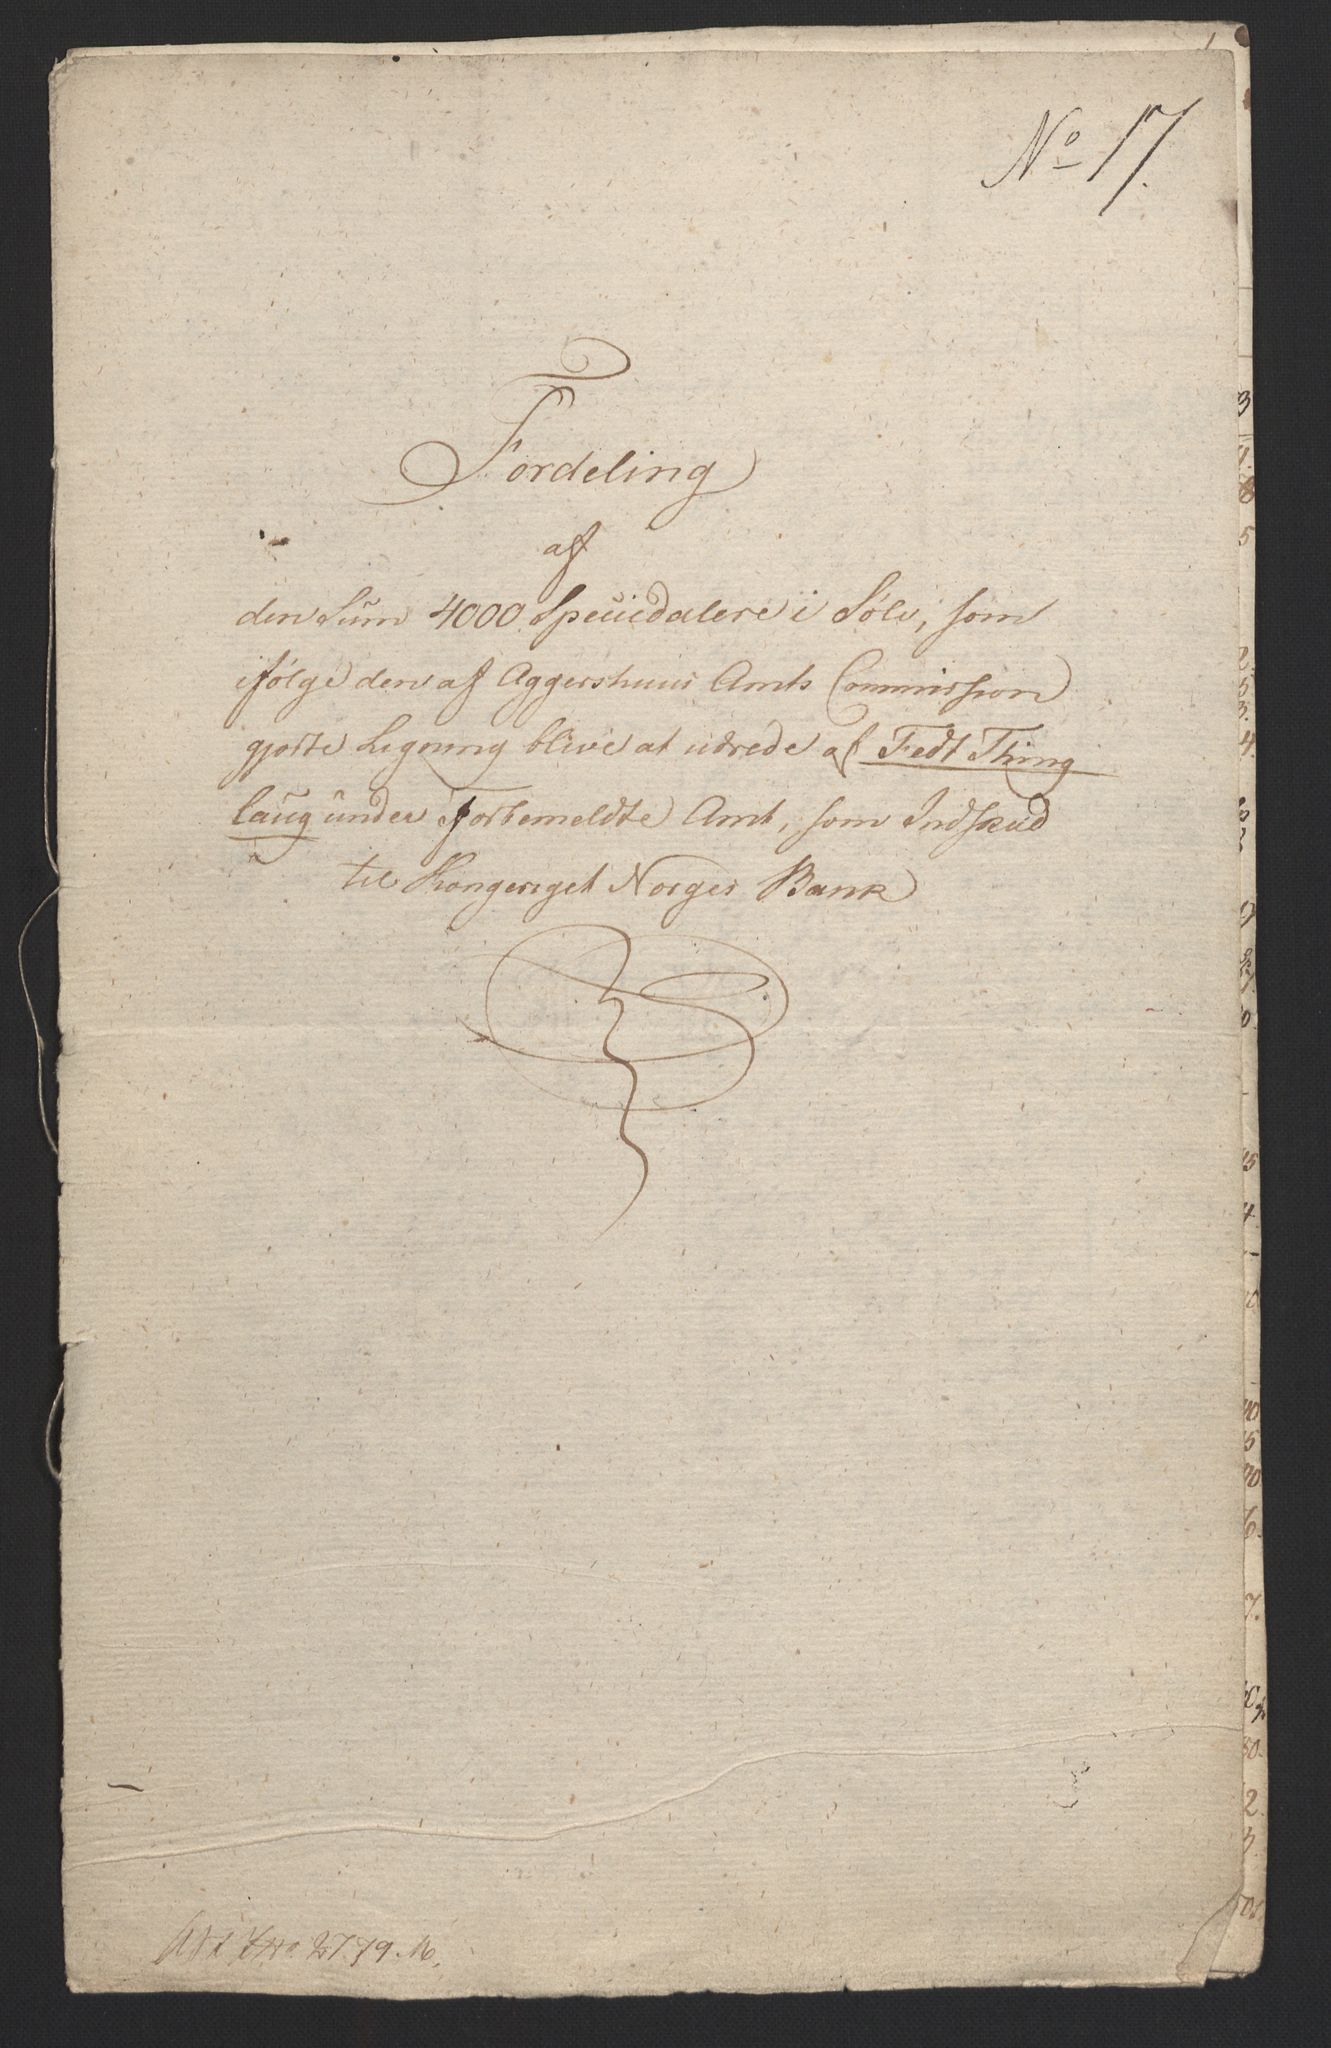 No 17.
Fordeling
af
den Sum 4000 Speciedalere i Sølv, som
ifølge den af Aggershuus Amts Commission
gjorte Ligning blive at udrede af Fedt Thing
laug under forbemeldte Amt, som Indskud
til Kongeriget Norges Bank